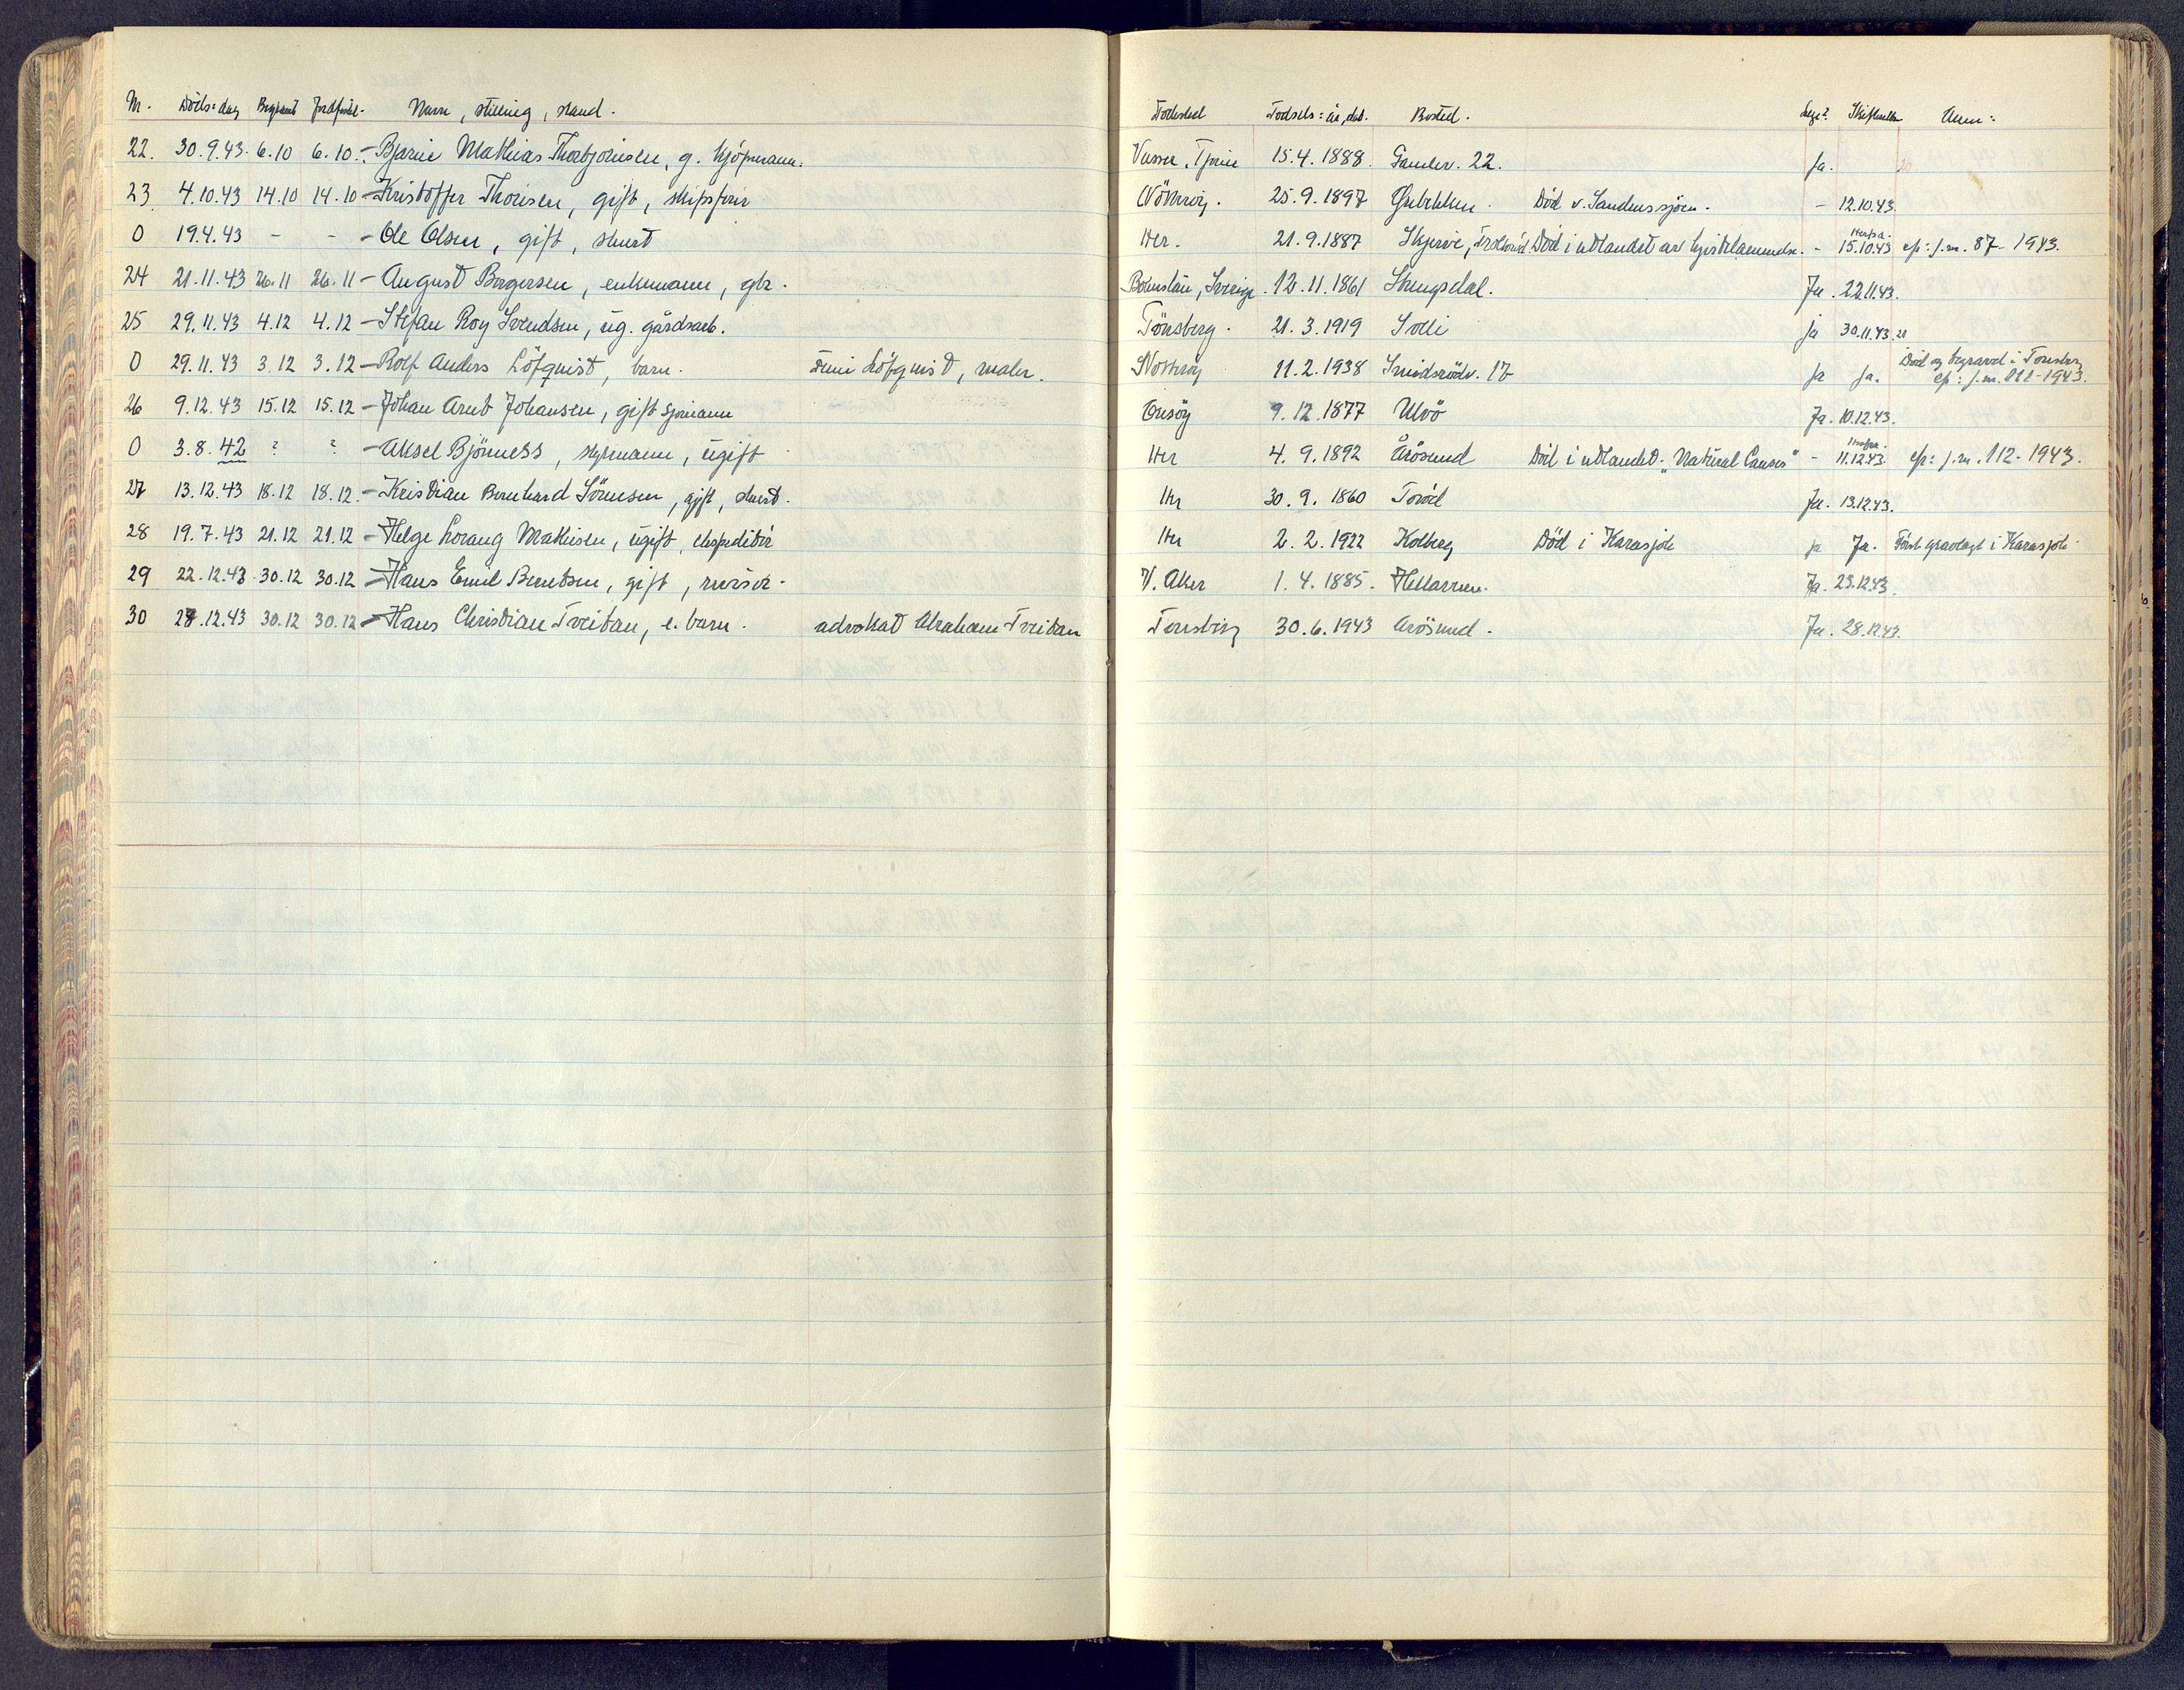 Nr. Döds=dag Begravet Jordfestet. Navn, stilling, stand. Födested Födsels=år, dab. Bosted. Lege? Skifteretten Anm:
22. 30.9.43. 6.10 6.10.- Bjarne Mathias Thorbjörnsen, g. kjöpmann. Tjöme 15.4.1888. Gamlev. 22. Ja.
23. 4.10.43 14.10 14.10 - Kristoffer Thorisen, gift, skipsförer Nötteröy. 25.9.1897 Gubekken. Död v. Sandnessjöen. - 12.10.43.
0 19.4.43 - - - Ole Olsen, gift, stuert Her. 21.9.1887 Skjerve, Död i utlandet av - 15.10.43 cfr: j.nr. 87-1943.
24 21.11.43 26.11 26.11 - August Borgersen, enkemann, gbr. Bohuslän, Sverige. 12.11.1861 Stangsdal. Ja. 22.11.43.
25 29.11.43 4.12 4.12 - Stefan Roy Svendsen, ug. gårdsarb. Tönsberg. 21.3.1919 Solli ja 30.11.43.
0 29.11.43 3.12 3.12 - Rolf Anders Löfquist, barn. Löfquist, maler. Nötteröy 11.2.1938 Smidsrödv. 17 ja ja. Död og begravet i Tönsberg cfr: j.nr. 111-1943.
26 9.12.43 15.12 15.12 - Johan Arnt Johansen, gift sjömann Onsöy 9.12.1877 Ulvö Ja. 10.12.43.
0 3.8.42 ? ? - Aksel Björness, styrmann, ugift Her 4.9.1892 Årösund Död i utlandet. "Natural Causes" - 11.12.43. cfr: j.nr. 112-1943.
27 13.12.43 18.12 18.12. - Kristian Bernhard Sörensen, gift, stuert. Her 30.9.1860 Toröd Ja. 13.12.43.
28 19.7.43 21.12 21.12 - Helge Lorang Mathisen, ugift, ekspeditör Her 2.2.1922 Kolberg Död i Karasjok ja Ja. Först gravlagt i Karasjok.
29 22.12.43. 30.12 30.12 - Hans Emil Berntsen, gift, revisor. V. Aker 1.4.1885. Hellarveien. Ja. 23.12.43.
30 28.12.43 30.12 30.12 - Hans Christian Tveitan, e. barn. advokat Abraham Tveitan Tönsberg 30.6.1943 Årösund. Ja. 28.12.43.